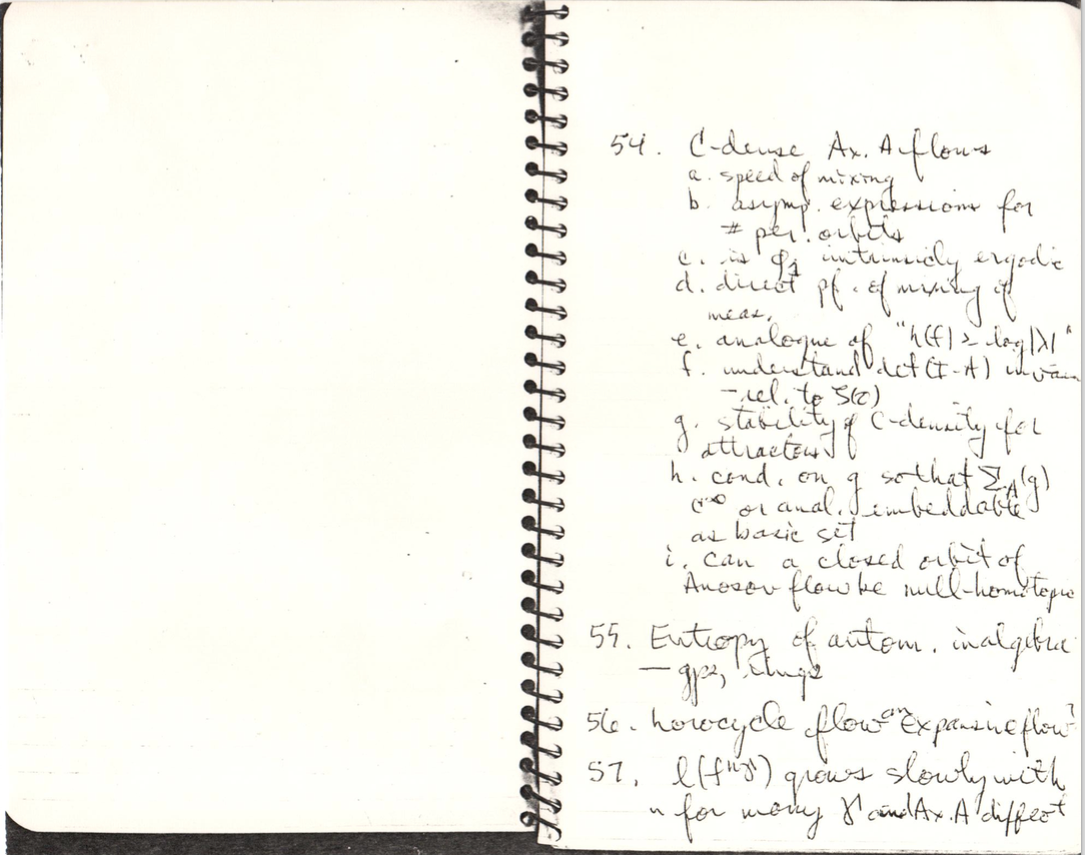 54. C-dense Ax. A flows
a. speed of mixing
b. asymp. expressions for
# per. orbits
c. is φ₁ intrinsicly ergodic
d. direct pf. of mixing of
meas.
e. analogue of "h(f) ≥ log|λ|"
f. understand det(I-A) invar
- rel. to ζ(z)
g. stability of C-density for
attractors
h. cond. on g so that Σ_A(g)
C^∞ or anal. embeddable
as basic set
i. can a closed orbit of
Anosov flow be null-homotopic
55. Entropy of autom. in algebra
— gps, rings
56. horocycle flow an expansive flow?
57. l(fⁿγ) grows slowly with
n for many γ and Ax. A diffeo